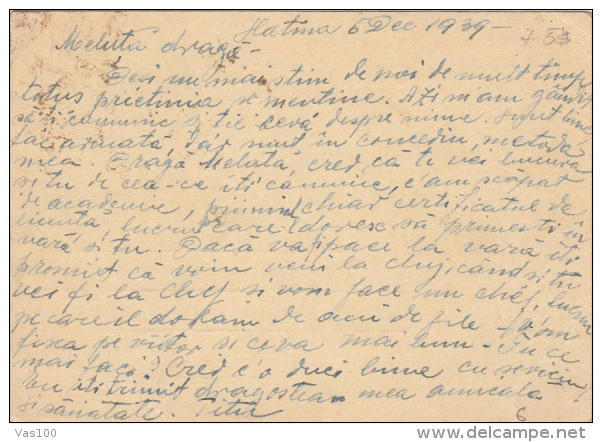 Hatma 6 Dec 1939 –
Meluta dragă –
Desi nu mai stim de noi de mult timp
totus prietinia se mentine. Azi m'am gândit
să-ti comunic si tie ceva despre mine. Sunt bine
armată, dar sunt în concediu, metoda
mea. Dragă Meluta, cred ca te vei bucura
si tu de cea-ce iti comunic, c'am scăpat
de academie, primind chiar certificatul de
licentă, lucru care doresc să primesti în
vară si tu. Dacă va fi pace la vară iti
promit că vom veni la Cluj, când si tu
vei fi la Cluj si vom face un chef, lucru
pe care il doriam de acii de zile. Vom
fixa pe viitor si ceva mai bun – Tu ce
mai faci? Cred c'o duci bine cu serviciu,
Eu iti trimit dragostea mea amicala
si sănatate. Titu
6
Vas100
http://www.delcampe.net